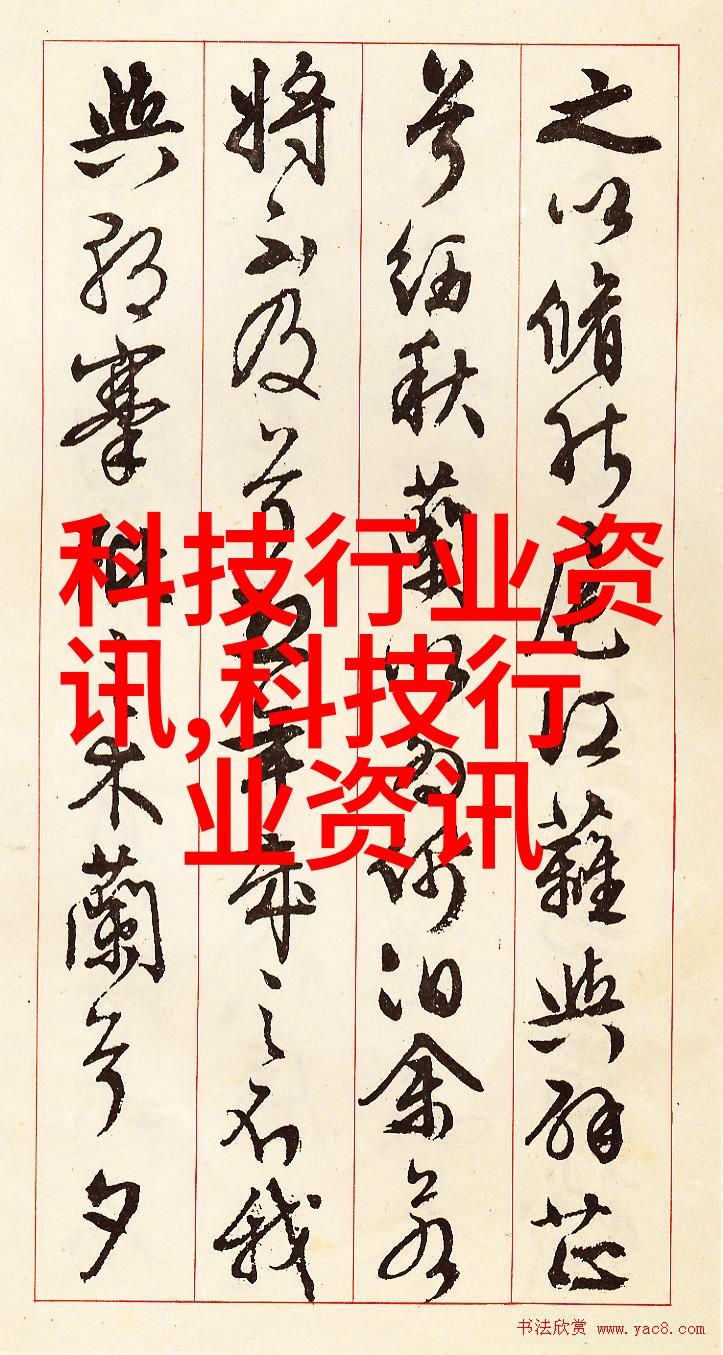 之以脩能扈江蘺與辟芷
兮紉秋蘭以為佩汩余若
將不及兮恐年歲之不我
與朝搴阰之木蘭兮夕
科技行业资
讯,科技行
业资讯
书法欣赏 www.yac8.com